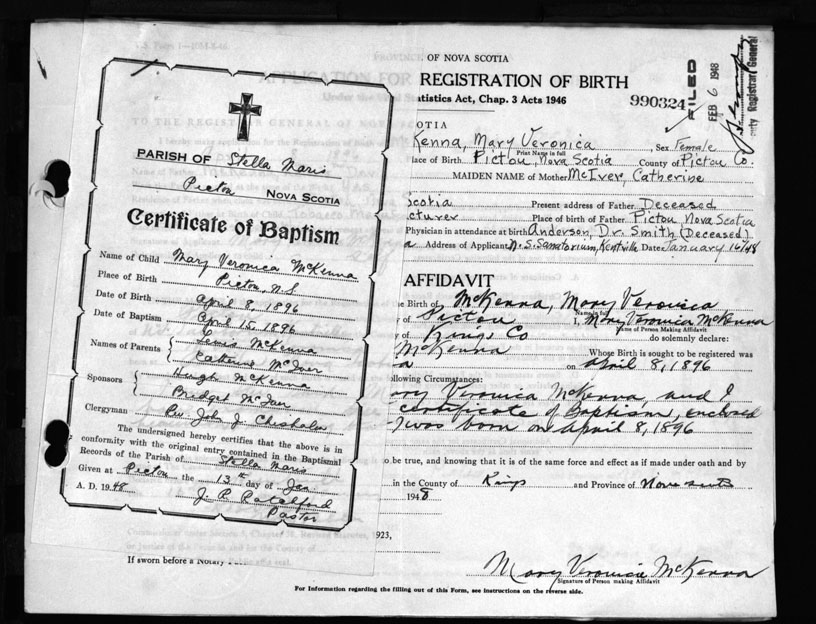 PARISH OF Stella Maris
Pictou NOVA SCOTIA
Certificate of Baptism
Name of Child Mary Veronica McKenna
Place of Birth Pictou N.S
Date of Birth April 8, 1896
Date of Baptism April 15, 1896
Names of Parents Lewis McKenna
Catherine McIver
Sponsors Hugh McKenna
Bridget McIver
Clergyman Rev John J. Chisholm
The undersigned hereby certifies that the above is in
conformity with the original entry contained in the Baptismal
Records of the Parish of Stella Maris
Given at Pictou the 13th day of Jan
A. D. 1948 J. P.
Pastor
OF NOVA SCOTIA
REGISTRATION OF BIRTH
tatistics Act, Chap. 3 Acts 1946
990324
FILED
FEB 6 1948
uty Registrar General
OTIA
Kenna, Mary Veronica Sex Female
Print Name in full
lace of Birth Pictou, Nova Scotia County of Pictou Co.
MAIDEN NAME of Mother McIver, Catherine
Scotia Present address of Father Deceased
cturer Place of birth of Father Pictou, Nova Scotia
Physician in attendance at birth Anderson, Dr. Smith (Deceased)
a Address of Applicant N.S. Sanatorium, Kentville Date January 16/48
AFFIDAVIT
he Birth of McKenna, Mary Veronica
Name in full
of Pictou I, Mary Veronica McKenna
Name of Person Making Affidavit
y of Kings Co do solemnly declare:
McKenna Whose Birth is sought to be registered was
a on April 8, 1896
ollowing Circumstances:
ary Veronica McKenna, and I
certificate of Baptism, enclosed
I was born on April 8, 1896
o be true, and knowing that it is of the same force and effect as if made under oath and by
in the County of Kings and Province of Nova Scotia
1948
1923,
If sworn before a Notary
Mary Veronica McKenna
Signature of Person making Affidavit
For Information regarding the filling out of this Form, see instructions on the reverse side.